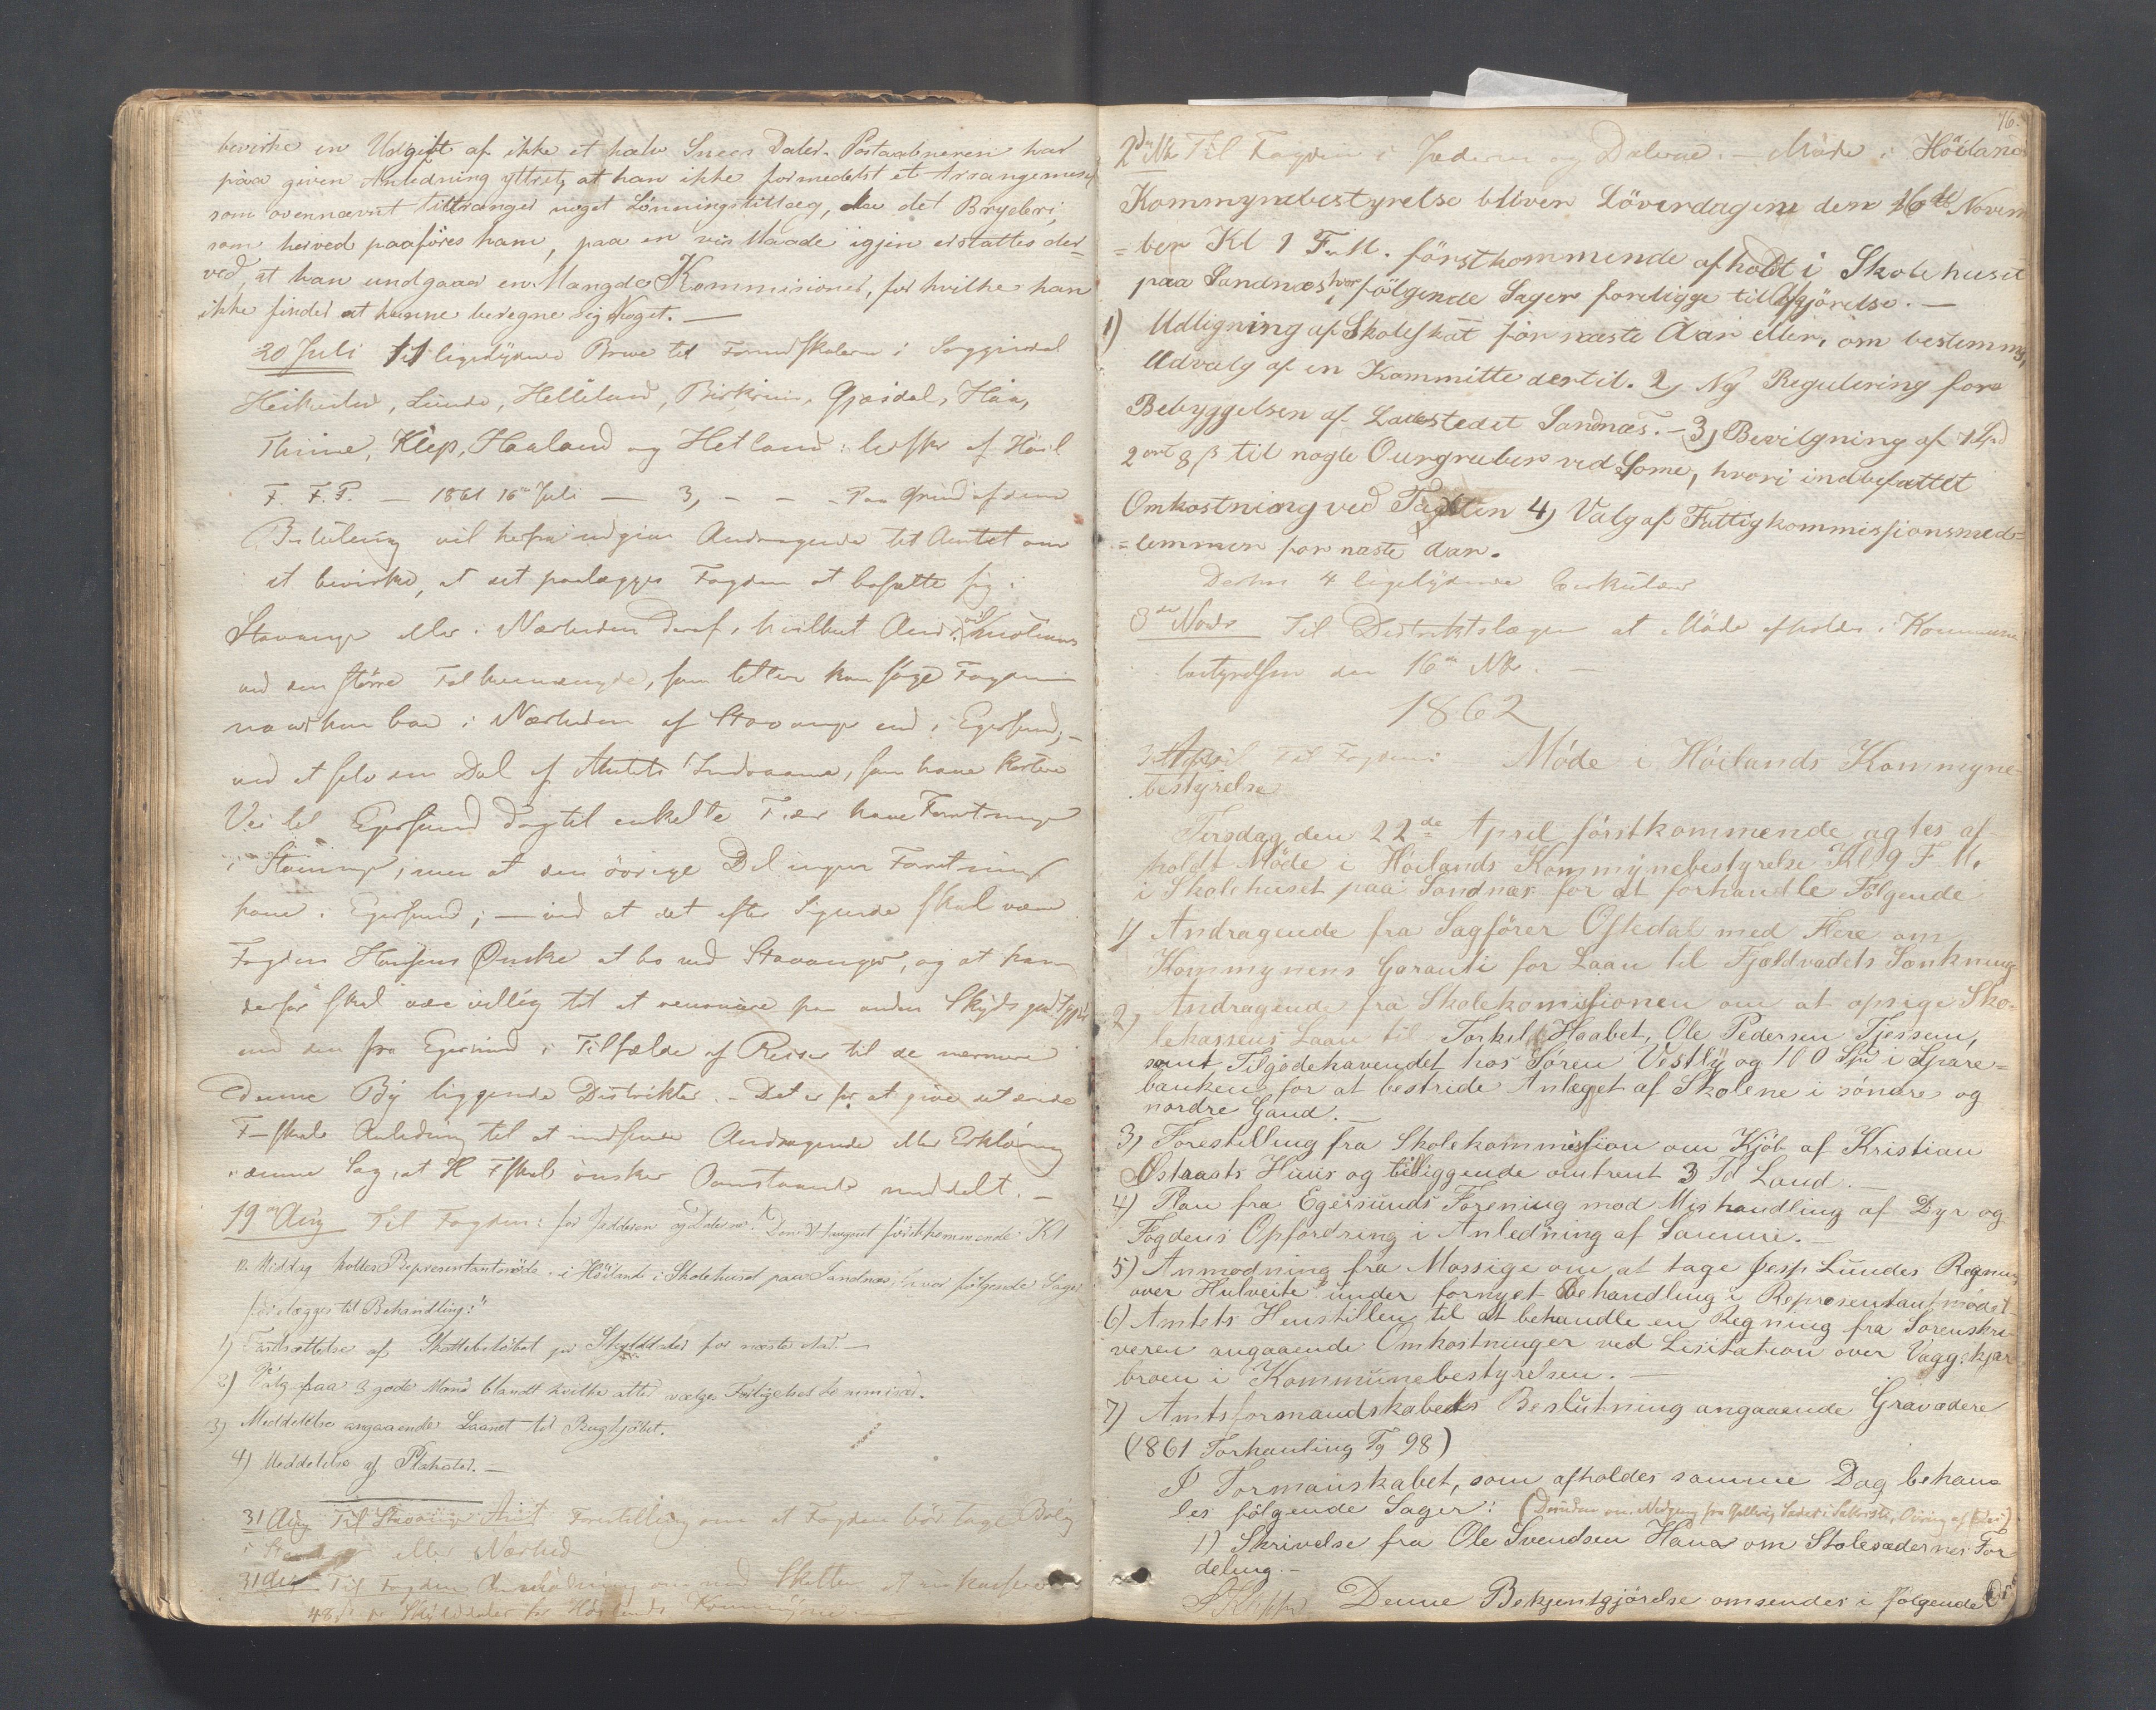 bevirke en Udgift af ikke et halv Snees Daler. Postaabneren har
paa given Anledning yttret, at han ikke formedelst et Arrangement
som ovennævnt tiltrænger noget Lønningstillæg, da det Bryderi,
som herved paaføres ham, paa en vis Maade igjen erstattes der-
ved, at han undgaaer en Mængde Kommisioner, for hvilke han
ikke finder at kunne beregne sig Noget. —
20 Juli 11 ligelydende Breve til Formdskaberne i Soggendal
Heskestad, Lunde, Helleland, Birkrem, Gjesdal, Haa,
Thime, Klep, Haaland og Hetland:
F. F. P. — 1861 16de Juli — 3, - - - Paa Grund af denne
Beslutning vil herfra indgives Andragende til Amtet om
at bevirke, at det paalægges Fogden at bosætte sig i
Stavanger eller i Nærheden deraf, hvilket And.
ved den større Folkemængde, som lettere kan søge Fogden
naar han boer i Nærheden af Stavanger end i Egersund; —
ved at selv den Del af Amtets Indvaanere, som have kortere
Vei til Egersund dog til enkelte Tider have Forretninger
i Stavanger, men at den øvrige Del ingen Forretning
have i Egersund; — ved at det efter Sigende skal være
Fogden Hansens Ønske at bo ved Stavanger, og at han
derfor skal være villig til at renoncere paa anden Skydsgodtgj
end den fra Egersund i Tilfælde af Reiser til de nærmere
denne By liggende Distrikter. — Det er for at give det ærede
F-skab Anledning til at indsende Andragende eller Erklæring
i denne Sag, at H Fskab ønsker Ovenstaaende meddelt. —
19de Aug Til Fogden: for Jædderen og Dalerne. "Den August førstkommende Kl
12 Middag holdes Representantmøde i Höiland i Skolehuset paa Sandnæs, hvor følgende Sager
forelægges til Behandling:"
1) Fastsættelse af Skattebeløbet pr Skylddaler for næste Aar. —
2) Valg paa 3 gode Mænd blandt hvilke atter vælges Forligelseskommisær.
3) Meddelelse angaaende Laanet til Rugkjøbet.
4) Meddelelse af Plakater. —
31 Aug Til Stavanger Amt Forestilling om at Fogden bør tage Bolig
i Stavanger eller Nærhed
31 Aug Til Fogden Anmodning om ved Skatten at inkassere
48 ß pr Skylddaler for Høilands Kommyne
76.
2den Nbr Til Fogden i Jæderen og Dalerne. — Møde i Höilands
Kommynebestyrelse bliver Löverdagen den 16de Novem
=ber Kl 9 F.M. förstkommende afholdt i Skolehuset
paa Sandnæs hvor fölgende Sager foreligge til Afgjörelse. —
1) Udligning af Skoleskat for næste Aar eller, om bestemmes,
Udvalg af en Kommitte dertil. 2) Ny Regulering for
Bebyggelsen af Ladestedet Sandnæs. — 3) Bevilgning af 1 Spd
2 ort 8 ß til nogle Ourgruber ved Some, hvori indbefattet
Omkostning ved Taxten 4) Valg af Fattigkommissionsmed=
=lemmer for næste Aar.
Derhos 4 ligelydende Cirkulærer
3de Novbr Til Distriktslægen at Møde afholdes i Kommune
bestyrelsen den 16de Nbr. —
1862
April Til Fogden: Møde i Høilands Kommyne-
bestyrelse
Tirsdag den 22de April førstkommende agtes af
holdt Møde i Høilands Kommynebestyrelse Kl. 9 F.M.
i Skolehuset paa Sandnæs for at forhandle Følgende
1) Andragende fra Sagfører Oftedal med Flere om
Kommynens Garanti for Laan til Fjældvadets Sænkning
2) Andragende fra Skolekomissionen om at opsige Sko-
lekassens Laan til Torkil Haabet, Ole Pedersen Tjessem,
samt Tilgodehavendet hos Søren Vestly og 110 Spd i Spare=
banken for at bestride Anlæget af Skolene i søndre og
nordre Gand. —
3) Forestilling fra Skolekommission om Kjøb af Kristian
Østraats Huus og tilliggende omtrent 3 Td Land. —
4) Plan fra Egersunds Forening mod Mishandling af Dyr og
Fogdens Opfordring i Anledning af Samme. —
5) Anmodning fra Mossige om at tage Jesp Lundes Regning
over Hulveite under fornyet Behandling i Representantmødet
6) Amtets Henstillen til at behandle en Regning fra Sorenskri
veren angaaende Omkostninger ved Lisitation over Vaggskjær
broen i Kommunebestyrelsen. —
7) Amtsformandskabets Beslutning angaaende Gravødere
(1861 Forhanling Pg 98)
I Formanskabet, som afholdes samme Dag behan
les følgende Sager: (Desuden om
1) Skrivelse fra Ole Svendsen Hana om Stolesædernes For
deling. —
Denne Bekjentgjörelse omsendes i følgende